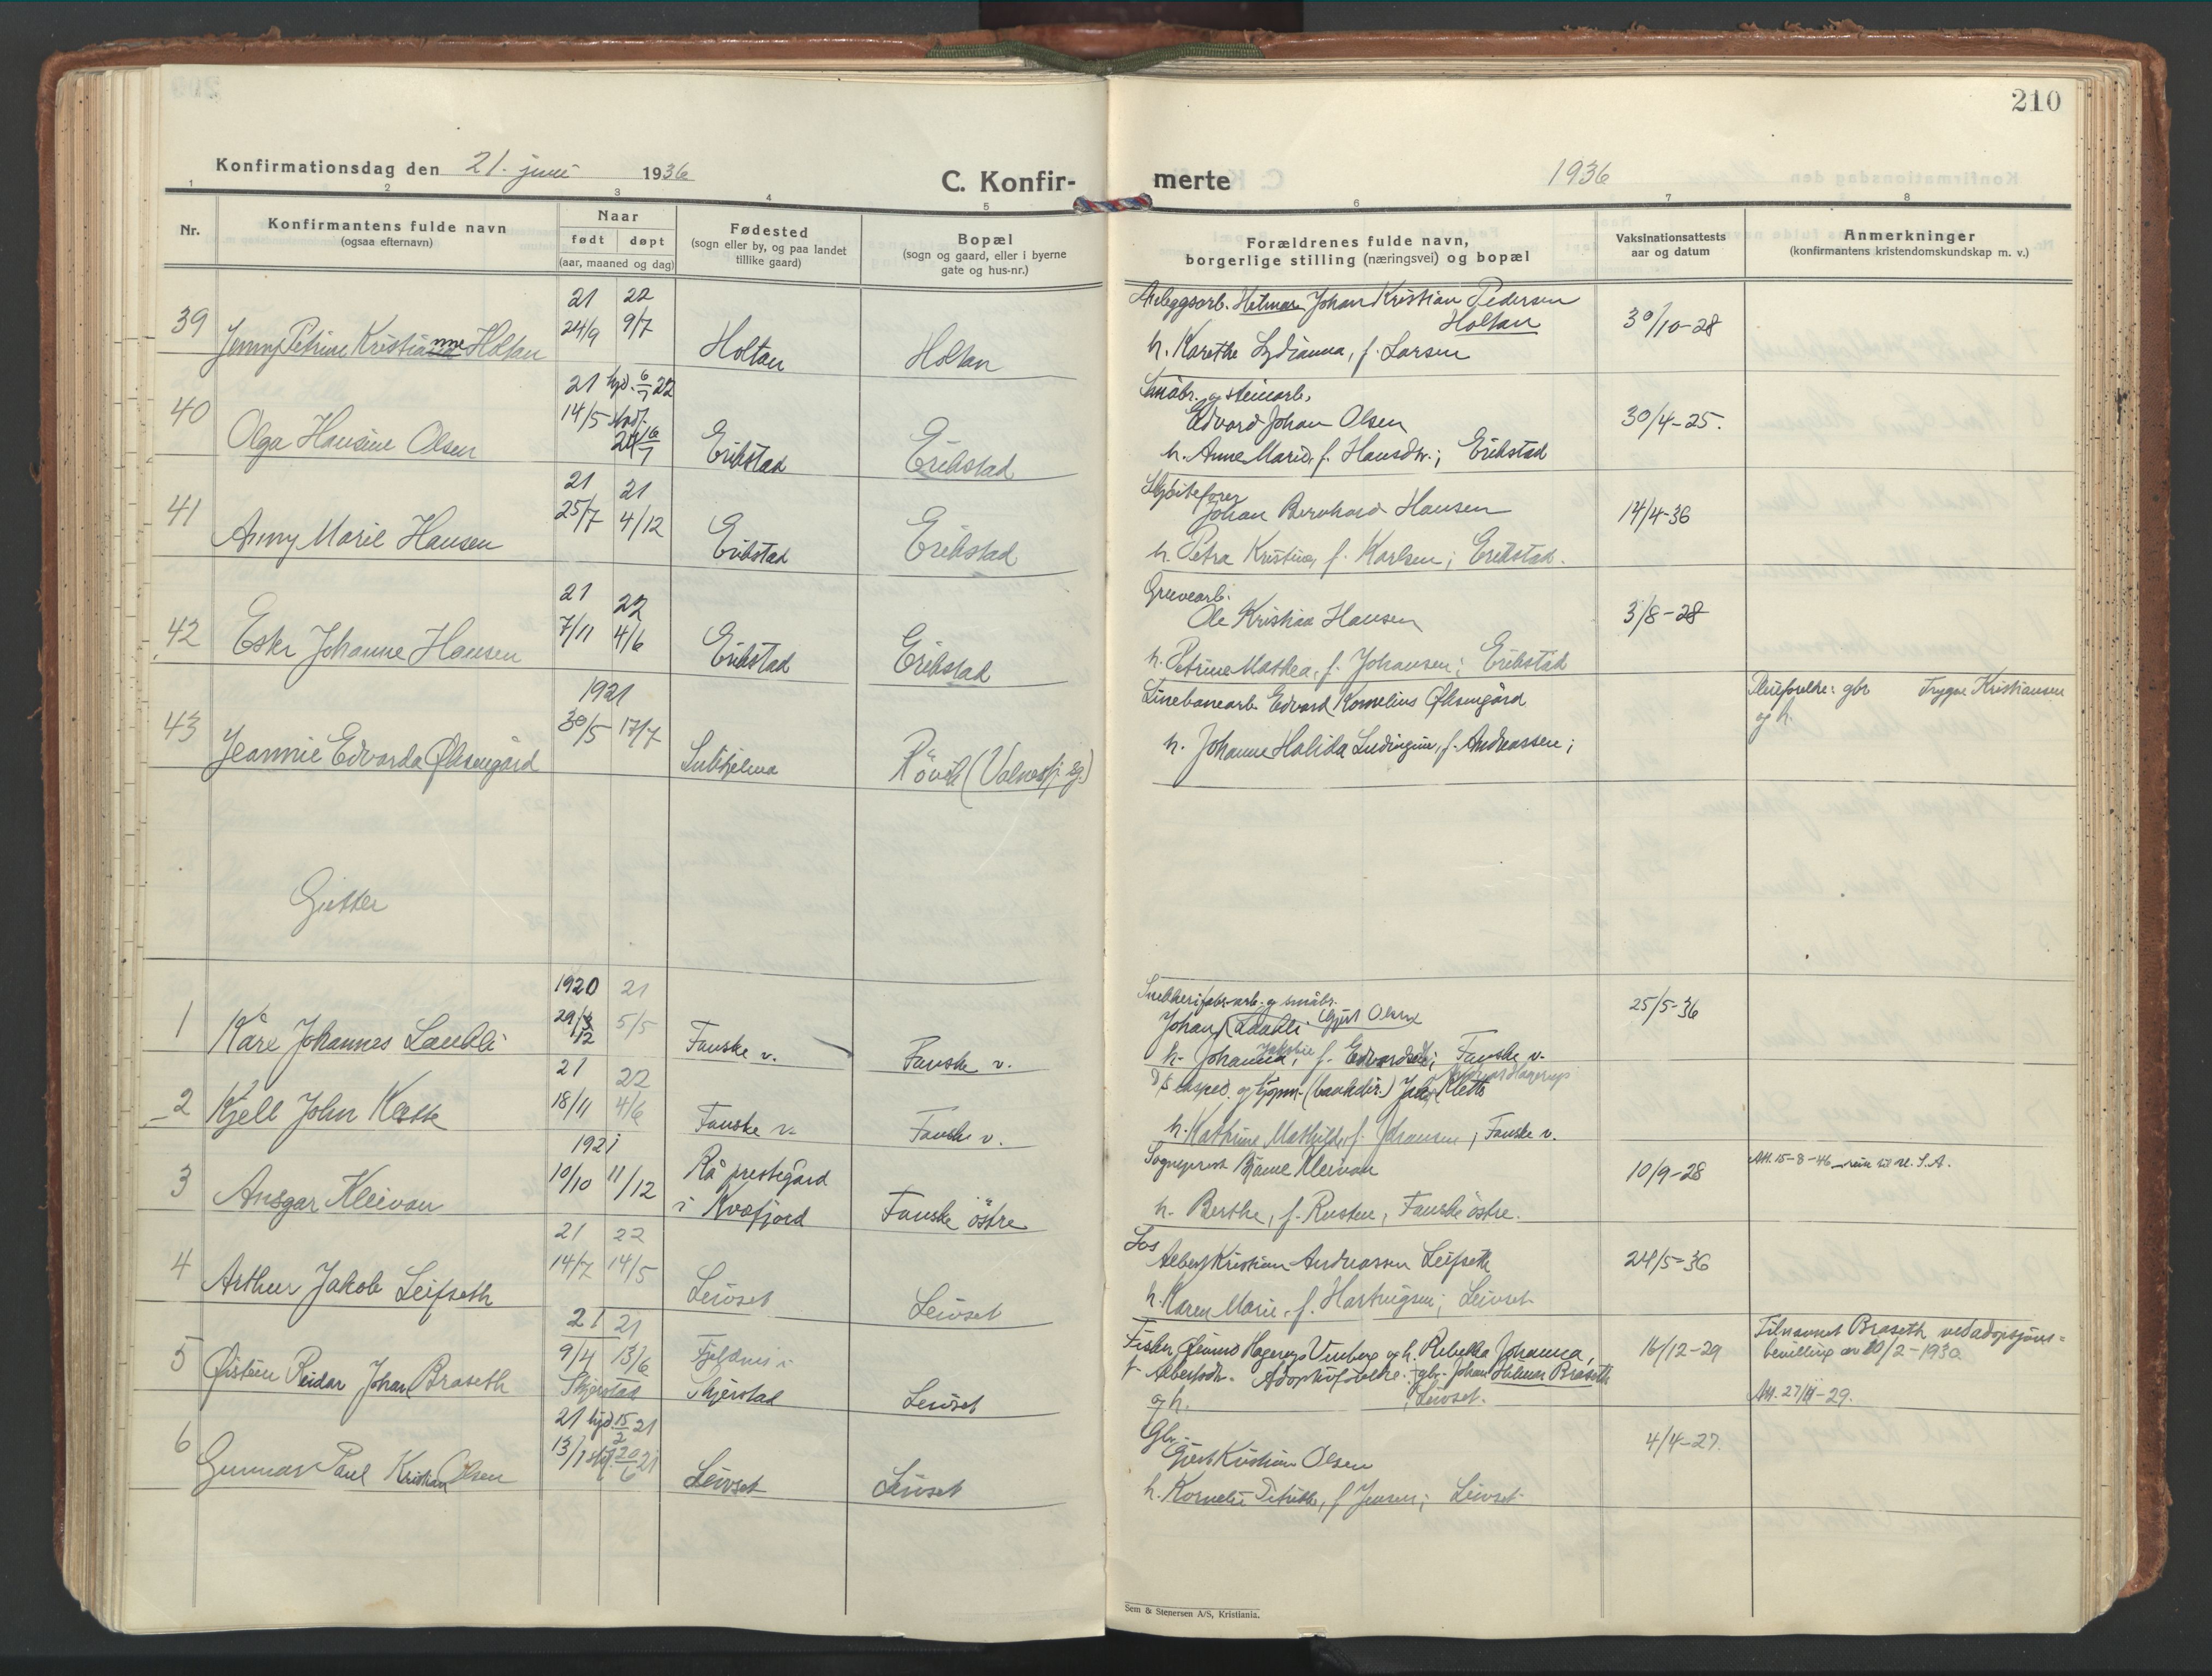 210
Konfirmationsdag den 21. juni 1936
C. Konfir-
merte
1936
1 2 3 4 5 6 7 8
Nr.
Konfirmantens fulde navn
(ogsaa efternavn)
Naar
født døpt
(aar, maaned og dag)
Fødested
(sogn eller by, og paa landet
tillike gaard)
Bopæl
(sogn og gaard, eller i byerne
gate og hus-nr.)
Forældrenes fulde navn,
borgerlige stilling (næringsvei) og bopæl
Vaksinationsattests
aar og datum
Anmerkninger
(konfirmantens kristendomskundskap m. v.)
21 22
39 24/9 9/7
Jenny Petrine Kristianne Holtan Holtan Holtan
Anleggsarb. Hilmar Johan Kristian Pedersen
Holtan 30/10-28
h. Karethe Lydianna, f. Larsen
21 hjd. 6/7 22
40 14/5
Olga Hansine Olsen Erikstad Erikstad
Småbr. og steinarb.
Edvard Johan Olsen 30/4-25.
h. Anne Marie, f. Hansdtr.; Erikstad
21 21
41 25/7 4/12
Anny Marie Hansen Erikstad Erikstad
Skjöitefører
Johan Bernhard Hansen 14/4-36
h. Petra Kristine, f. Karlsen; Erikstad.
21 22
42 7/11 4/6
Ester Johanne Hansen Erikstad Erikstad
Gruvearb.
Ole Kristian Hansen 3/8-28
h. Petrine Mathea, f. Johansen; Erikstad
1921
43 30/5 17/7
Jeannie Edvarda Øksengård Sulitjelma Rövik (Valnesfj. sg.)
Linebanearb. Edvard Kornelius Øksengård
h. Johanne Halida, f. Andreassen;
Pleiefordre: gbr Trygve Kristiansen
og h.
Gutter
1920 21
1 29/12 5/5
Kåre Johannes Laukli Fauske v. Fauske v.
Snekkerifabr.arb. og småbr.
Johan Laukli Gjert Olsen 25/5-36
h. Johanna, f. Edvardsdtr; Fauske v.
21 22
2 18/11 4/6
Kjell John Klette Fauske v. Fauske v.
D/S eksped. og kjöpm. (bankdir.) Klette
h. Kathrine Mathilde, f. Johansen; Fauske v.
1921
3 10/10 11/12
Ansgar Kleivan Rå prestegård
i Kvæfjord Fauske östre
Sogneprest Bjarne Kleivan 10/9-28
h. Berthe, f. Rusten, Fauske östre.
Att. 15-8-46 reise til U.S.A.
21 22
4 14/7 14/5
Arthur Jakob Leifseth Leivset Leivset
Los
Albert Kristian Andreassen Leifseth 24/5-36
h. Karen Marie, f. Hartvigsen; Leivset
21 21
5 9/4 13/6
Øistein Reidar Johan Braseth
Skjerstad Skjerstad Leivset
Fisker Øivind Hagerup Vinberg og h. Rebekka Johanna,
f. Albertsdtr. Adoptivforeldre: gbr. Johan Hilmar Braseth
og h. Leivset. 16/12-29
Tilnavnet Braseth ved adopsjons=
bevilling av 20/2-1930.
Att. 27/11-29.
21 hjd. 15/2 21
6 13/1 20/6 21
Gunnar Paul Kristian Olsen Leivset Leivset
Gbr.
Gjert Kristian Olsen 4/4-27.
h. Kornelie, f. Jensen; Leivset
Sem & Stenersen A/S, Kristiania.